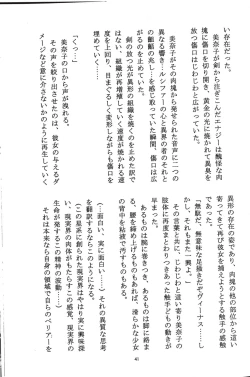 い存在だった。
美奈子が剣から注ぎこんだエナジーは醜怪な肉
塊に傷口を切り開き、黄金の光に焼かれて異臭を
放つ傷口はじわじわと広がっていた。
美奈子がその肉塊から発せられた音声に二つの
異なる響き…ルシファーの心と異界の者のそれと
の齟齬の兆し…を感じ取っていた瞬間、傷口は広
がるのを止めていた。
剣の放つ光が異形の組織を焼くのを止めた訳で
はない。組織が再増殖していく速度が焼かれる速
度を上回り、目まぐるしく変形しながらも傷口を
埋めていく……
「くっ…」
美奈子の口から声が洩れる。
その声を絞り出させたのは、彼女の与えるダ
メージなど意に介さないかのように再生していく
異形の存在の姿であり、肉塊の他の部位から這い
寄ってきて再び彼女を捕えようとする触手の感触
「無駄だ、無意味な足掻きだぞヴィーナス……し
かし、それもまた一興よ」
その言葉と共に、じわじわと這い寄り美奈子の
肢体に再度まとわりつきあった触手どもの動きが
早まった。
あるものは腕に巻きつき、あるものは脚に絡ま
る。腰を締め上げるものもあれば、滑らかな少女
の背中を粘液で汚すものもいる。
（…面白い、実に面白い……）その異質な思考
を翻訳するならばこのようになる。
（この星系に創られた現界はやはり実に興味深
い、現実界の肉体がもたらすこの感覚、現実界の
生命が発するこの精神の波動……）
それは本来なら自身の領域で自らのベリアーを
41